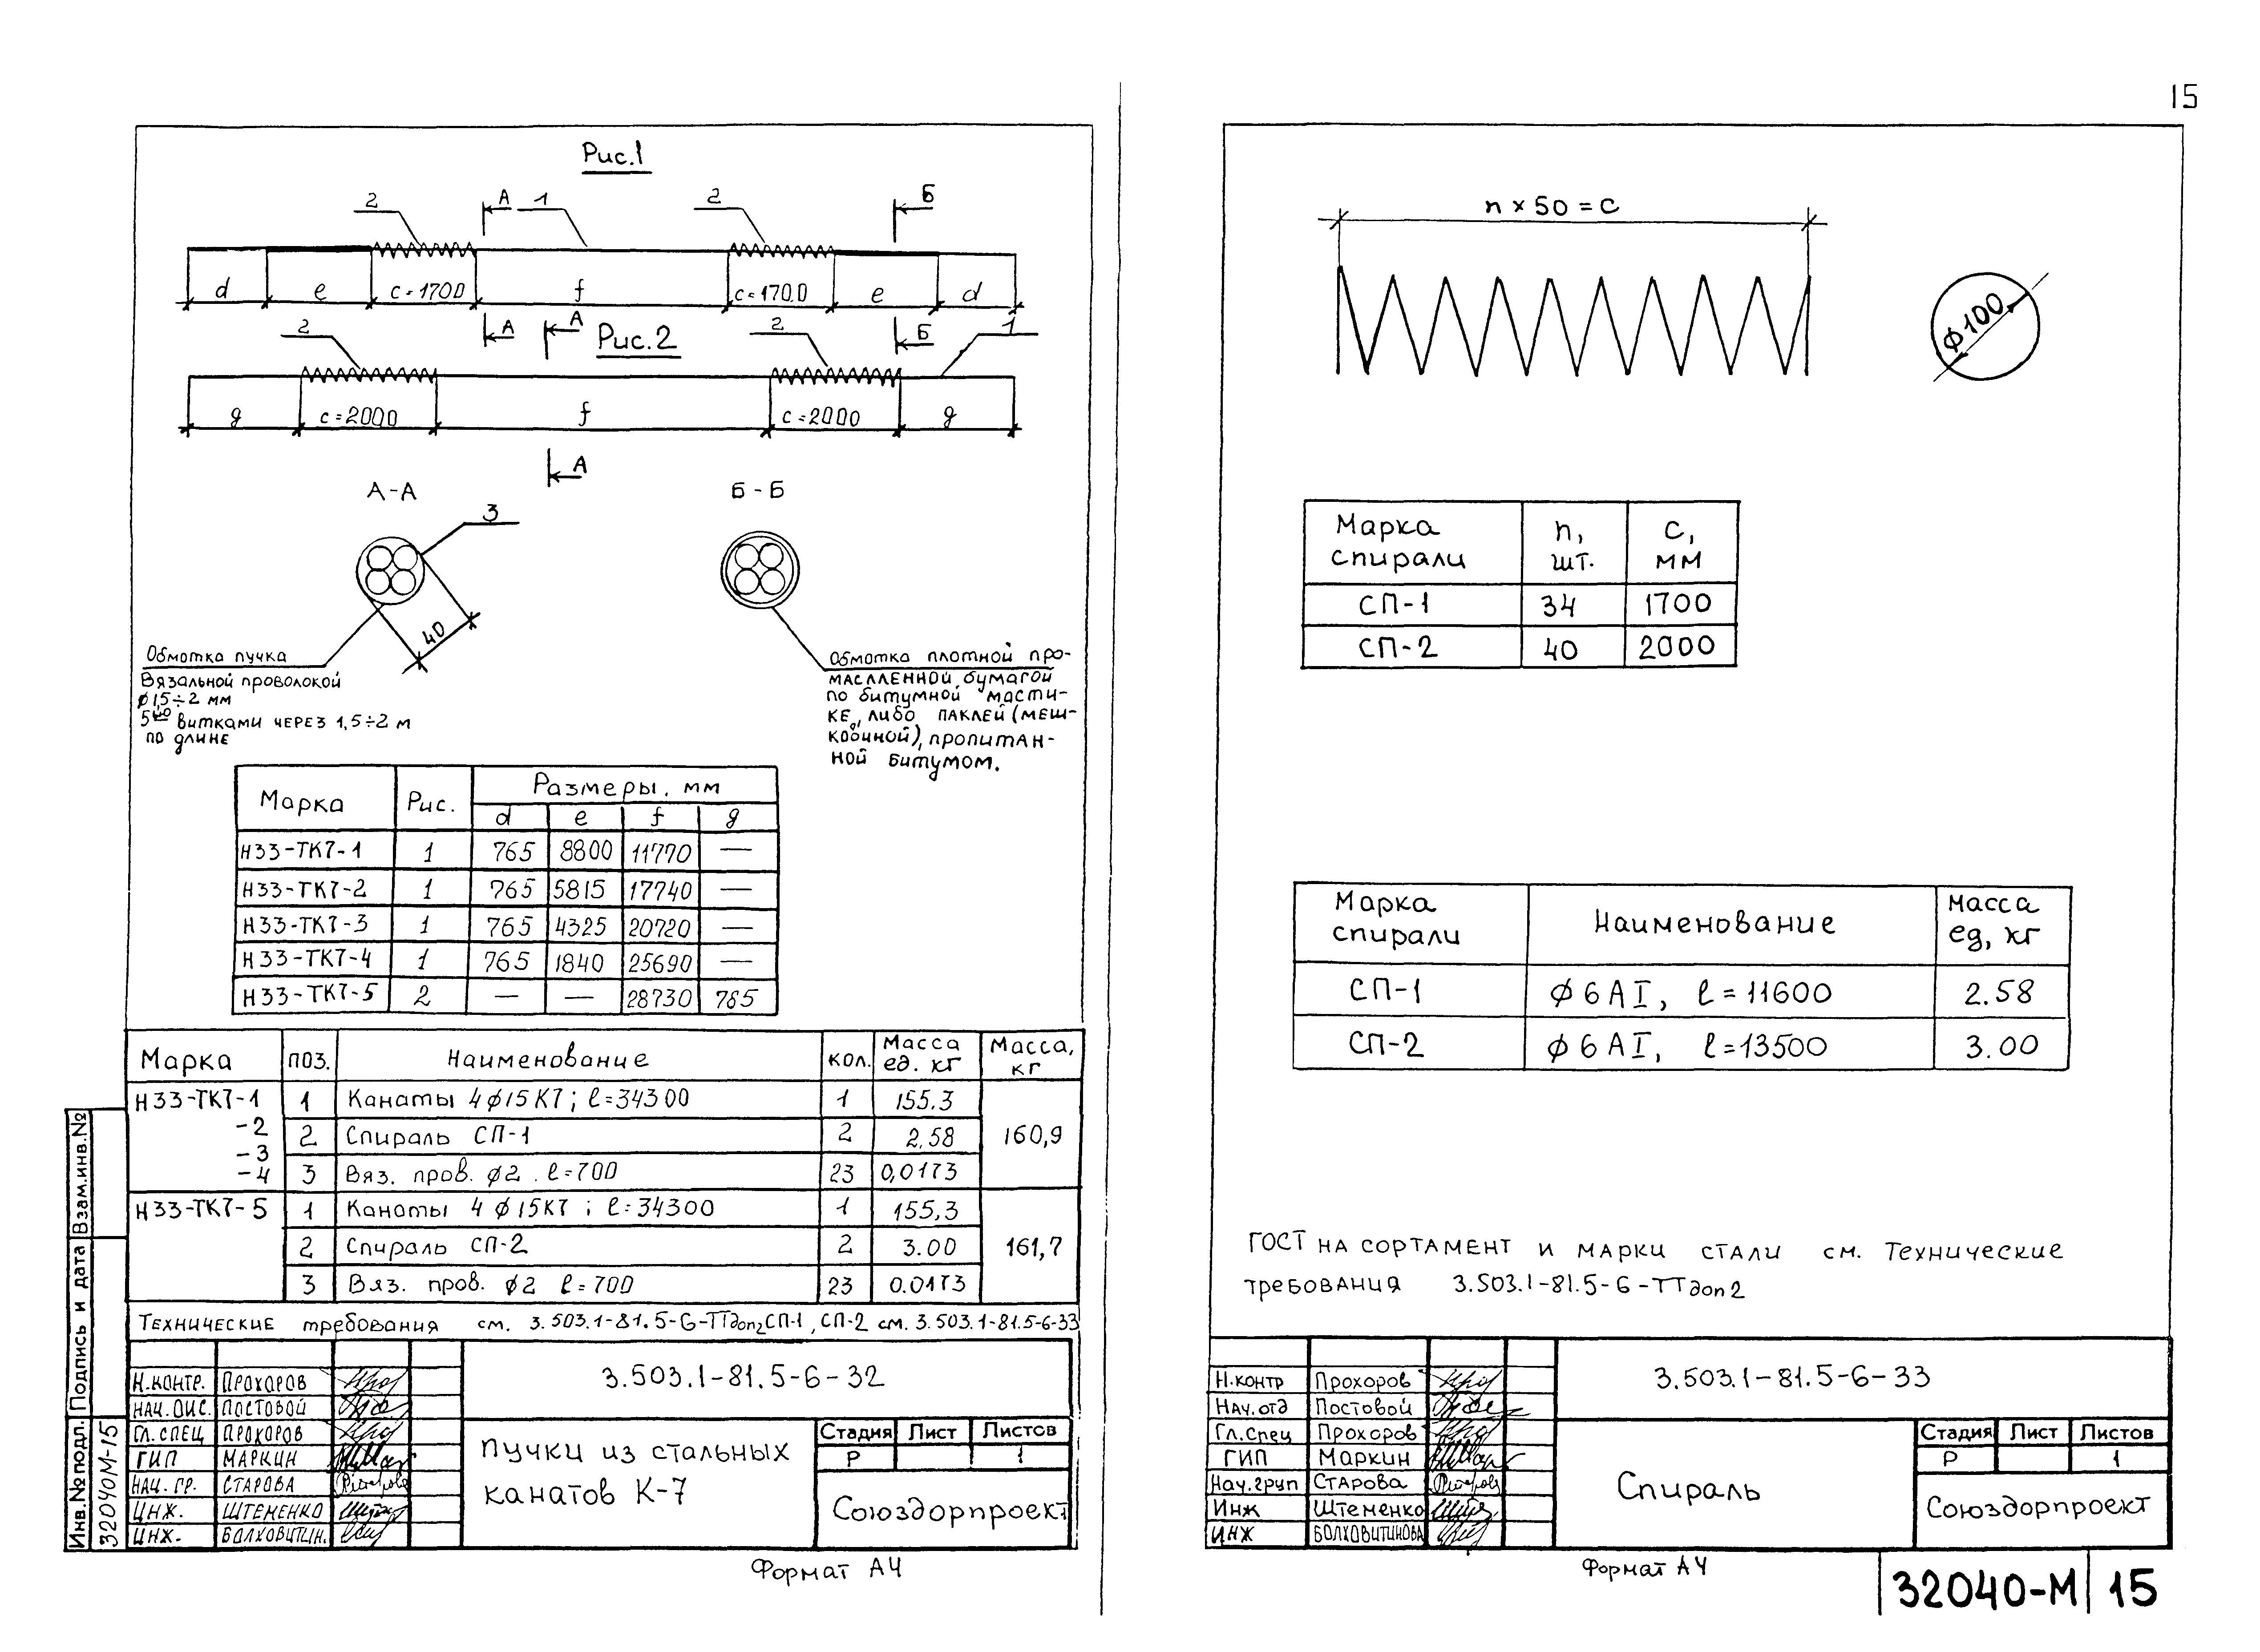 15
Рис.1
2 А 1 2 Б
d e c=1700 f c=1700 e d
2 А А Рис.2 2 Б 1
g c=2000 f c=2000 g
А
А-А Б-Б
3
40
Обмотка пучка
вязальной проволокой
ф1,5÷2 мм
5ью витками через 1,5÷2 м
по длине
Обмотка плотной про-
масленной бумагой
по битумной масти-
ке, либо паклей (меш-
ковиной), пропитан-
ной битумом.
Марка Рис. Размеры, мм
d e f g
Н33-ТК7-1 1 765 8800 11770 —
Н33-ТК7-2 1 765 5815 17740 —
Н33-ТК7-3 1 765 4325 20720 —
Н33-ТК7-4 1 765 1840 25690 —
Н33-ТК7-5 2 — — 28730 785
Марка поз. Наименование кол. Масса ед. кг Масса, кг
Н33-ТК7-1 1 Канаты 4ф15К7; ℓ=34300 1 155.3 160,9
-2 2 Спираль СП-1 2 2.58
-3
-4 3 Вяз. пров. ф2. ℓ=700 23 0,0173
Н33-ТК7-5 1 Канаты 4ф15К7; ℓ=34300 1 155,3 161,7
2 Спираль СП-2 2 3.00
3 Вяз. пров. ф2 ℓ=700 23 0.0173
Технические требования см. 3.503.1-81.5-6-ТТдоп2 СП-1, СП-2 см. 3.503.1-81.5-6-33
3.503.1-81.5-6-32
Н.контр. Прохоров
Нач.отс. Постовой
Гл.спец Прохоров
ГИП Маркин
Нач. гр. Старова
Инж. Штеменко
Инж. Болховитин.
Пучки из стальных
канатов К-7
Стадия Лист Листов
Р 1
Союздорпроект
Формат А4
Взам.инв.№
Подпись и дата
Инв.№подл.
32040М-15
n x 50 = c
ф100
Марка спирали n, шт. c, мм
СП-1 34 1700
СП-2 40 2000
Марка спирали Наименование масса ед, кг
СП-1 ф6АI, ℓ=11600 2.58
СП-2 ф6АI, ℓ=13500 3.00
ГОСТ на сортамент и марки стали см. Технические
требования 3.503.1-81.5-6-ТТдоп2
3.503.1-81.5-6-33
Н.контр Прохоров
Нач.отд Постовой
Гл.спец Прохоров
ГИП Маркин
Нач.груп Старова
Инж Штеменко
Инж Болховитинова
Спираль
Стадия Лист Листов
Р 1
Союздорпроект
Формат А4
32040-М 15